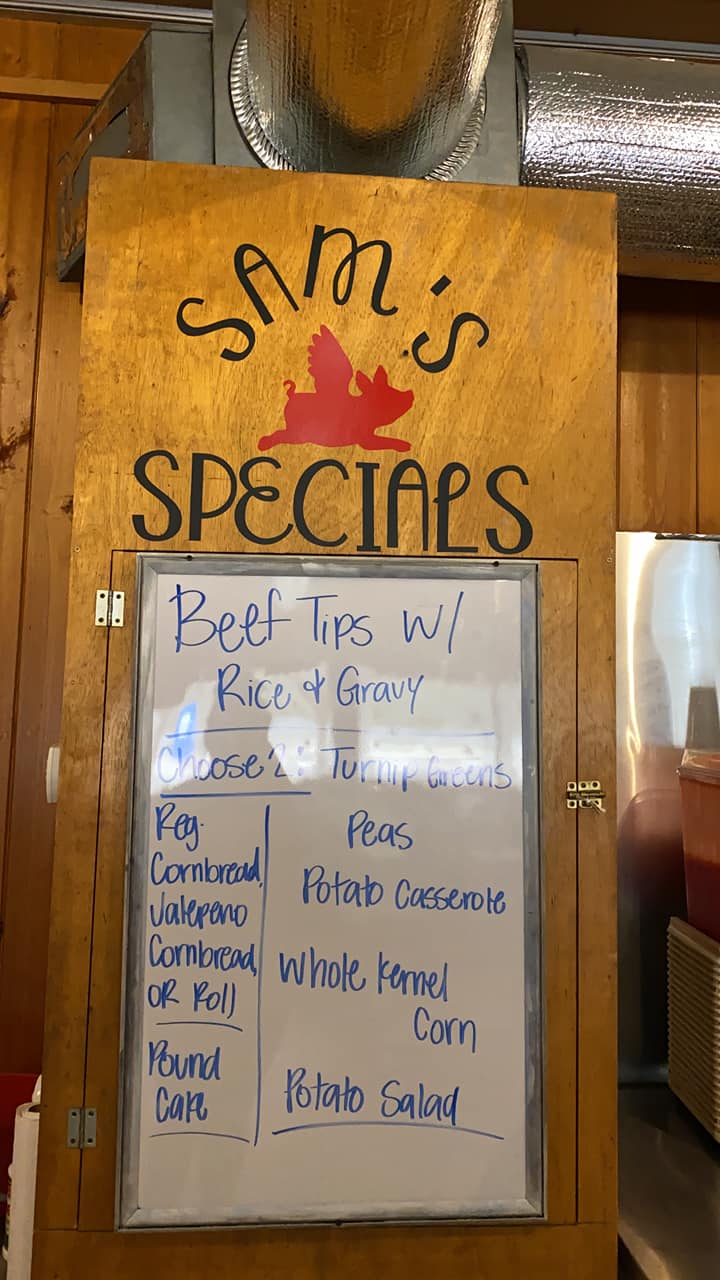 SAM'S
SPECIALS
Beef Tips w/
Rice & Gravy
Choose 2: Turnip Greens
Reg.
Cornbread,
Jalepeno
Cornbread,
OR Roll
Pound
Cake
Peas
Potato Casserole
Whole Kernel
Corn
Potato Salad